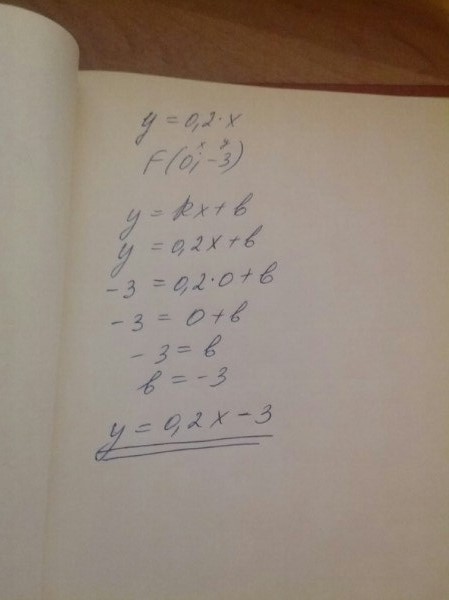 y = 0,2 · x
F(0; -3)
x y
y = kx + b
y = 0,2x + b
-3 = 0,2·0 + b
-3 = 0 + b
-3 = b
b = -3
y = 0,2x - 3